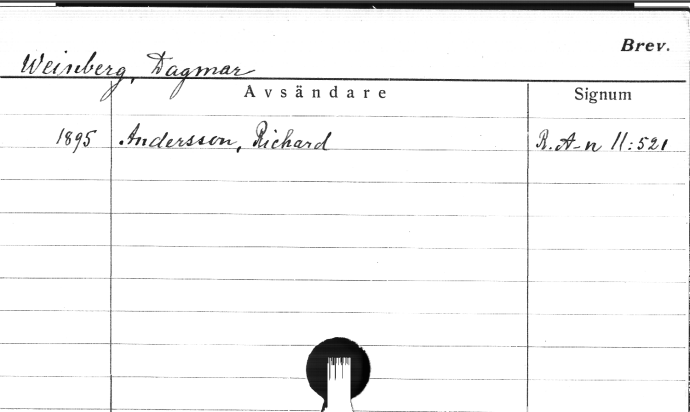 Brev.
Weinberg, Dagmar
Avsändare Signum
1895 Andersson, Richard R. A-n 11:521